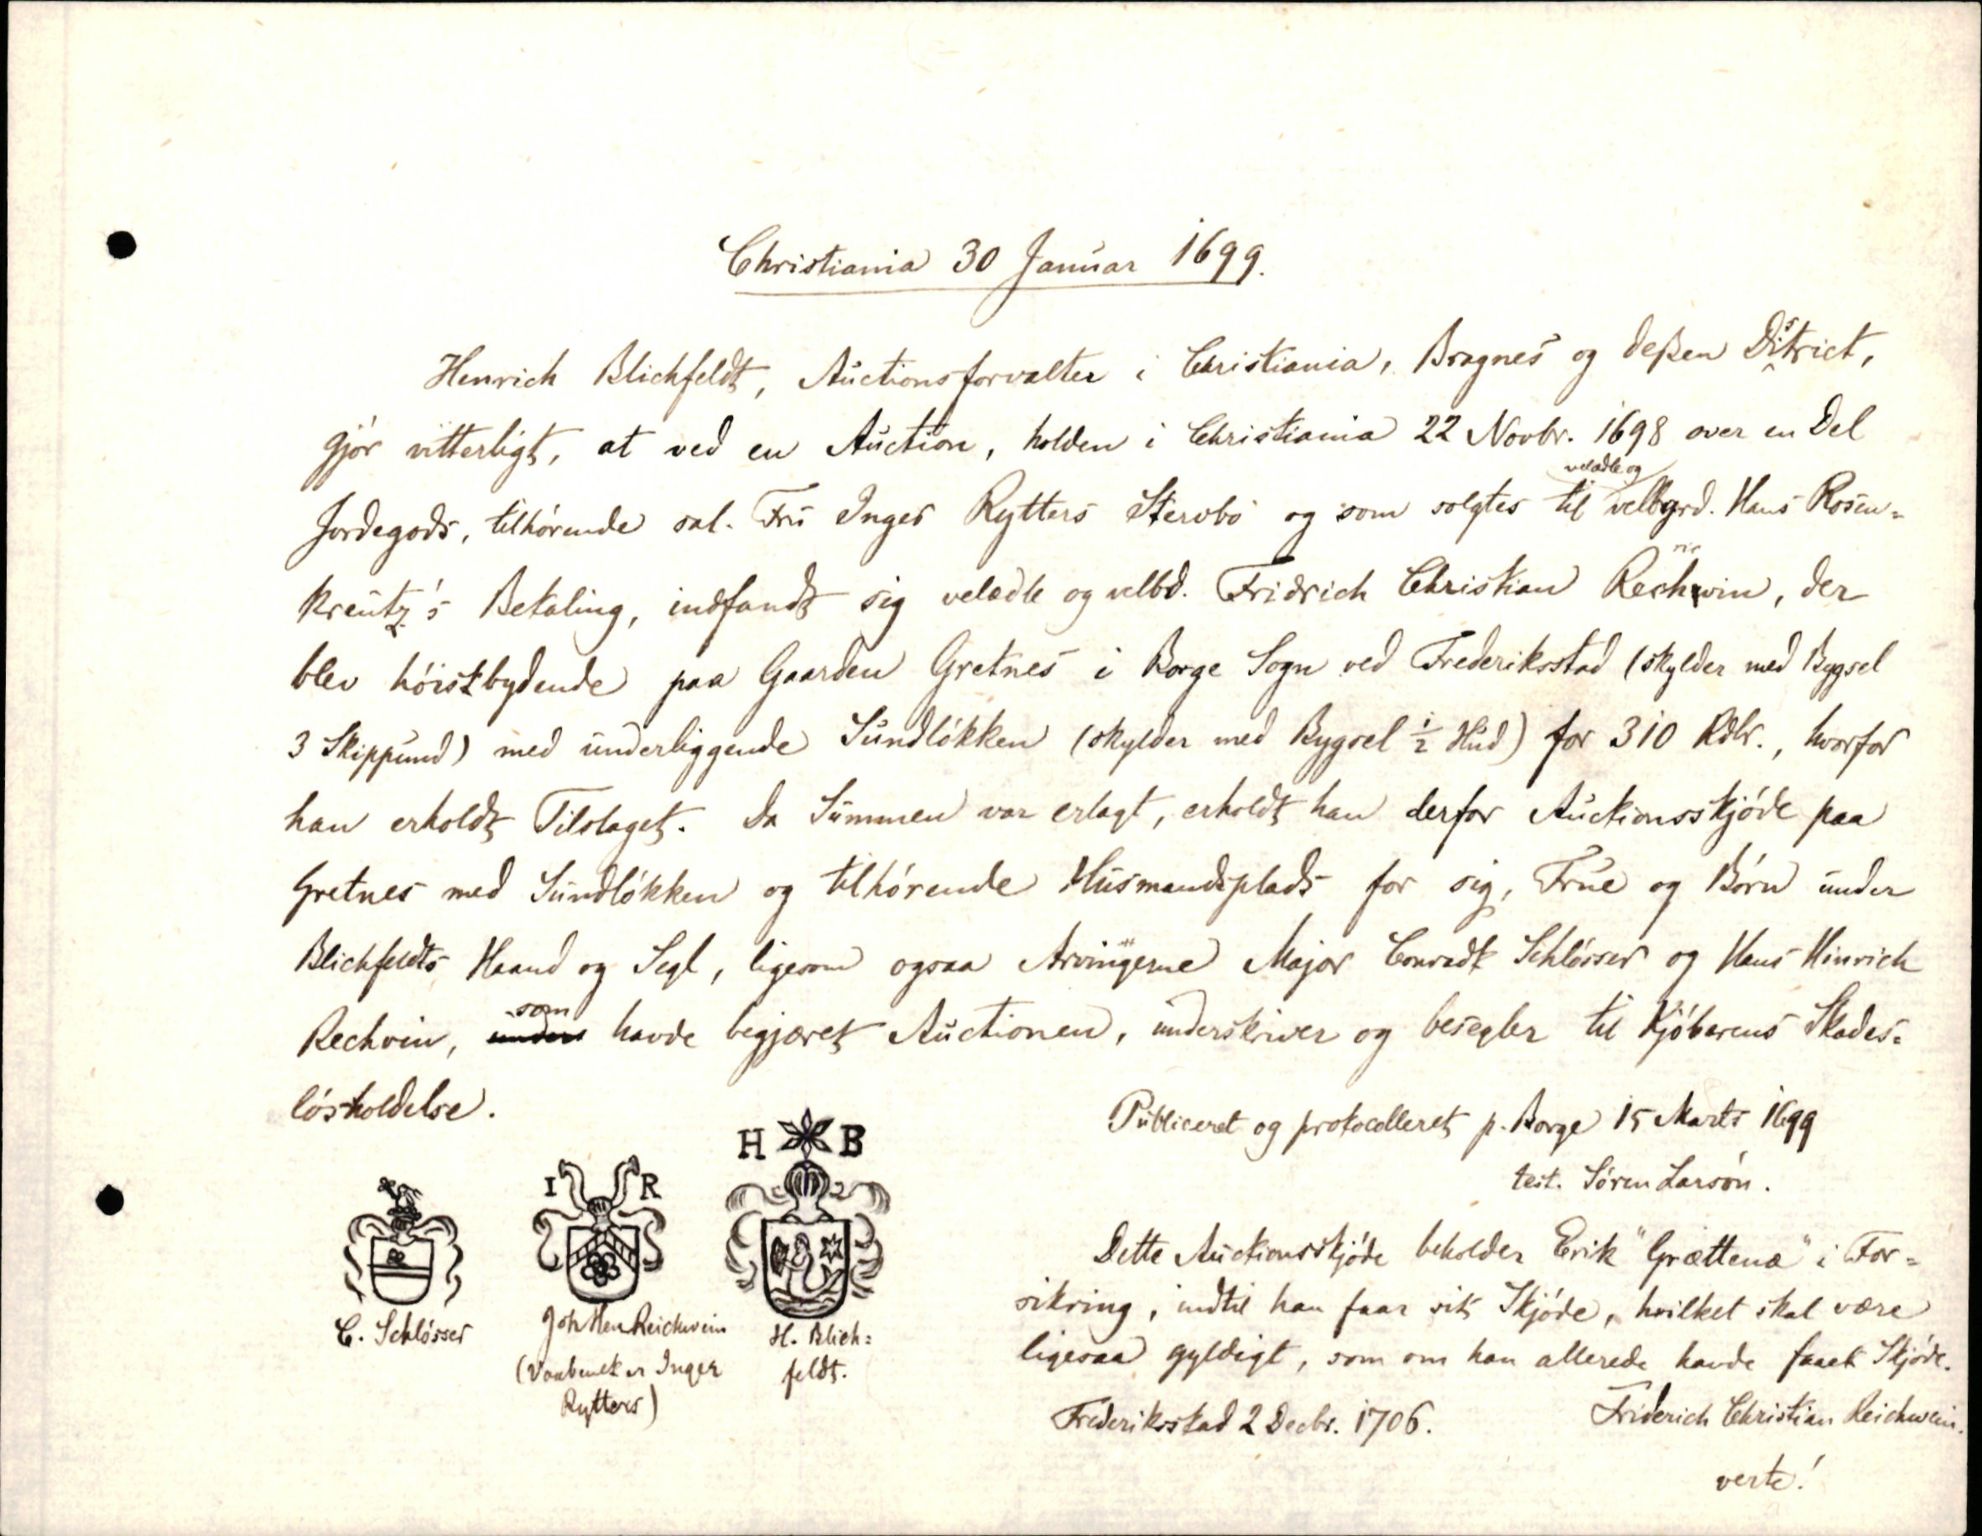 Christiania 30 Januar 1699.
Henrich Blichfeldt, Auctionsforvalter i Christiania, Bragnes og deßen District,
gjór vitterligt, at ved en Auction, holden i Christiania 22 Novbr. 1698 over en Del
Jordegods, tilhórende sal. Fru Inger Rytters Stervbo og som solgtes til velædle og velbyrd. Hans Rosen-
kreutz's Betaling, indfandt sig velædle og velbd. Fridrich Christian Rechwin, der
blev hóistbydende paa Gaarden Gretnes i Borge Sogn ved Frederiksstad (skylder med Bygsel
3 Skippund) med underliggende Sundlókken (skylder med Bygsel ½ Hud) for 310 Rdlr., hvorfor
han erholdt Tilslaget. Da Summen var erlagt, erholdt han derfor Auctionsskjóde paa
Gretnes med Sundlókken og tilhórende Husmandsplads for sig, Frue og Bórn under
Blichfeldts Haand og Segl, ligesom ogsaa Arvingerne Major Conradt Schlósser og Hans Hinrich
Rechvin, som havde begjæret Auctionen, underskriver og besegler til Kjóberens Skades-
lósholdelse.
Publiceret og protocolleret p. Borge 15 Marts 1699
test. Sóren Larsón.
H B
I R
C. Schlósser
Joh Hen Reichwein
(Vaabenet er Inger
Rytters)
H. Blich-
feldt.
Dette Auctionsskjóde beholder Erik "Grættenæ" i For-
sikring, indtil han faar sit Skjóde, hvilket skal være
ligesaa gyldigt, som om han allerede havde faaet Skjóde.
Frederiksstad 2 Decbr. 1706.
Friderich Christian Reichwein.
verte!